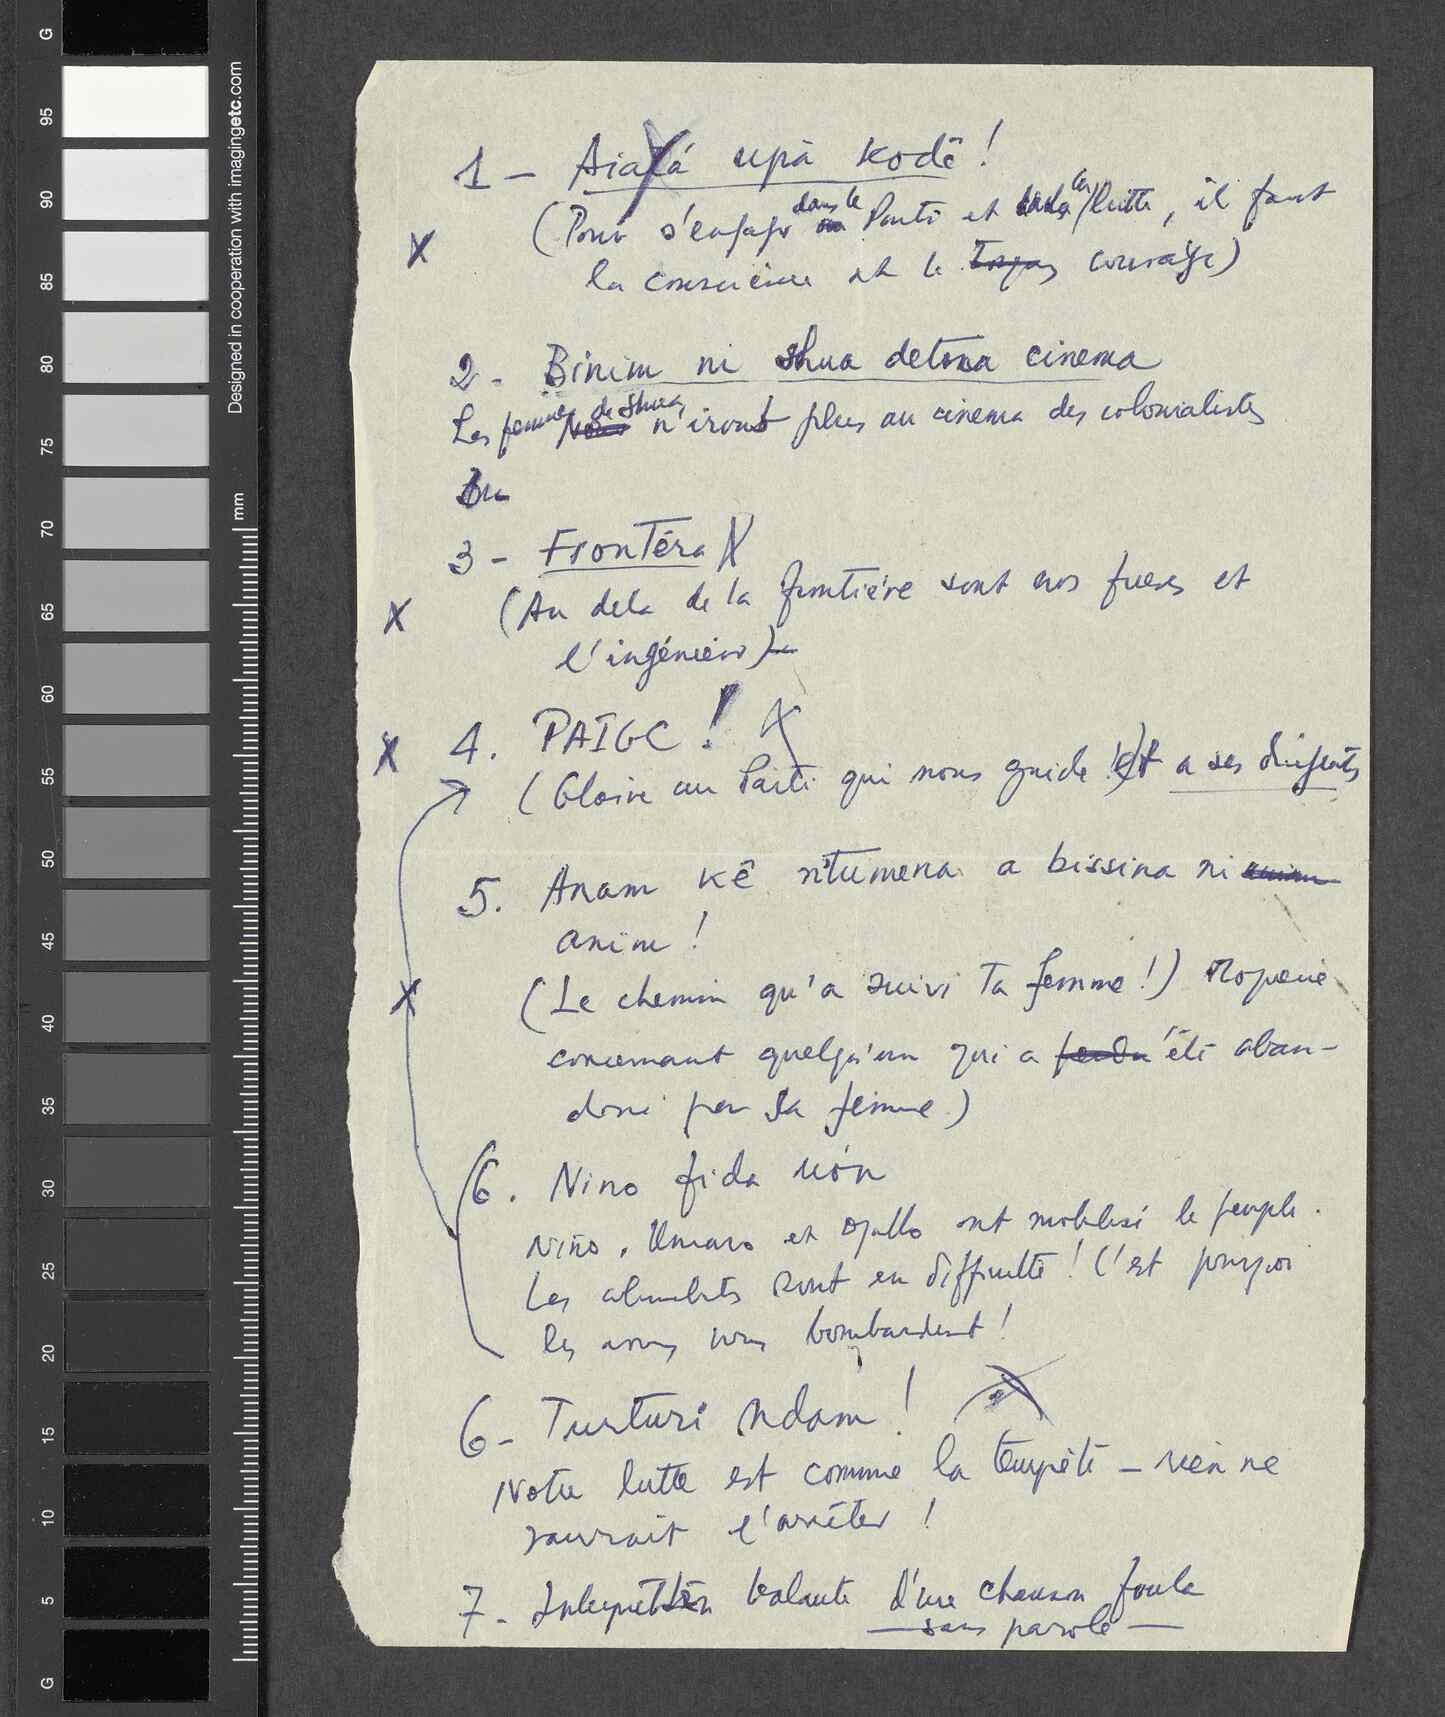 1 - Aiatá upà kodê !
(Pour s'engager dans le Parti et la lutte, il faut
la conscience et le courage)
2 - Binim ni Shua detona cinema
Les femmes de Shua, n'iront plus au cinema des colonialistes
3 - Frontêra
(Au dela de la frontière sont nos freres et
l'ingénieur)
4. PAIGC !
(Gloire au Parti qui nous guide et a ses dirigeants
5. Anam kê ntumena a bissina ni
anim !
(Le chemin qu'a suivi ta femme !)
concernant quelqu'un qui a perdu été aban-
donné par sa femme)
6. Nino fida uón
Niño, Umaro et Djallo ont mobilisé le peuple.
Les sont en difficulté ! C'est pourquoi
les nous bombardent !
6 - Turturi Ndam !
Notre lutte est comme la tempête - rien ne
saurait l'arrêter !
7 - Balante d'une chanson foula
— sans parole —
Designed in cooperation with imagingetc.com
mm
G
95
90
85
80
75
70
65
60
55
50
45
40
35
30
25
20
15
10
5
G